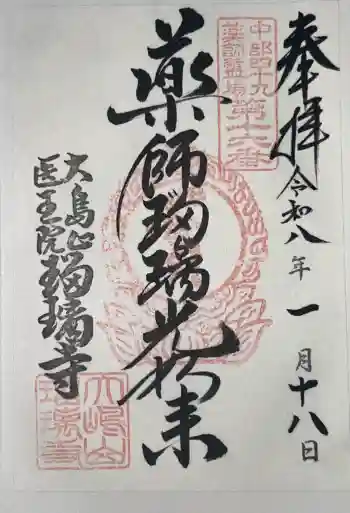 奉拝
令和八年一月十八日
中部四十九
薬師霊場第十六番
薬師瑠璃光如来
大島山
医王院瑠璃寺
大嶋山
瑠璃寺